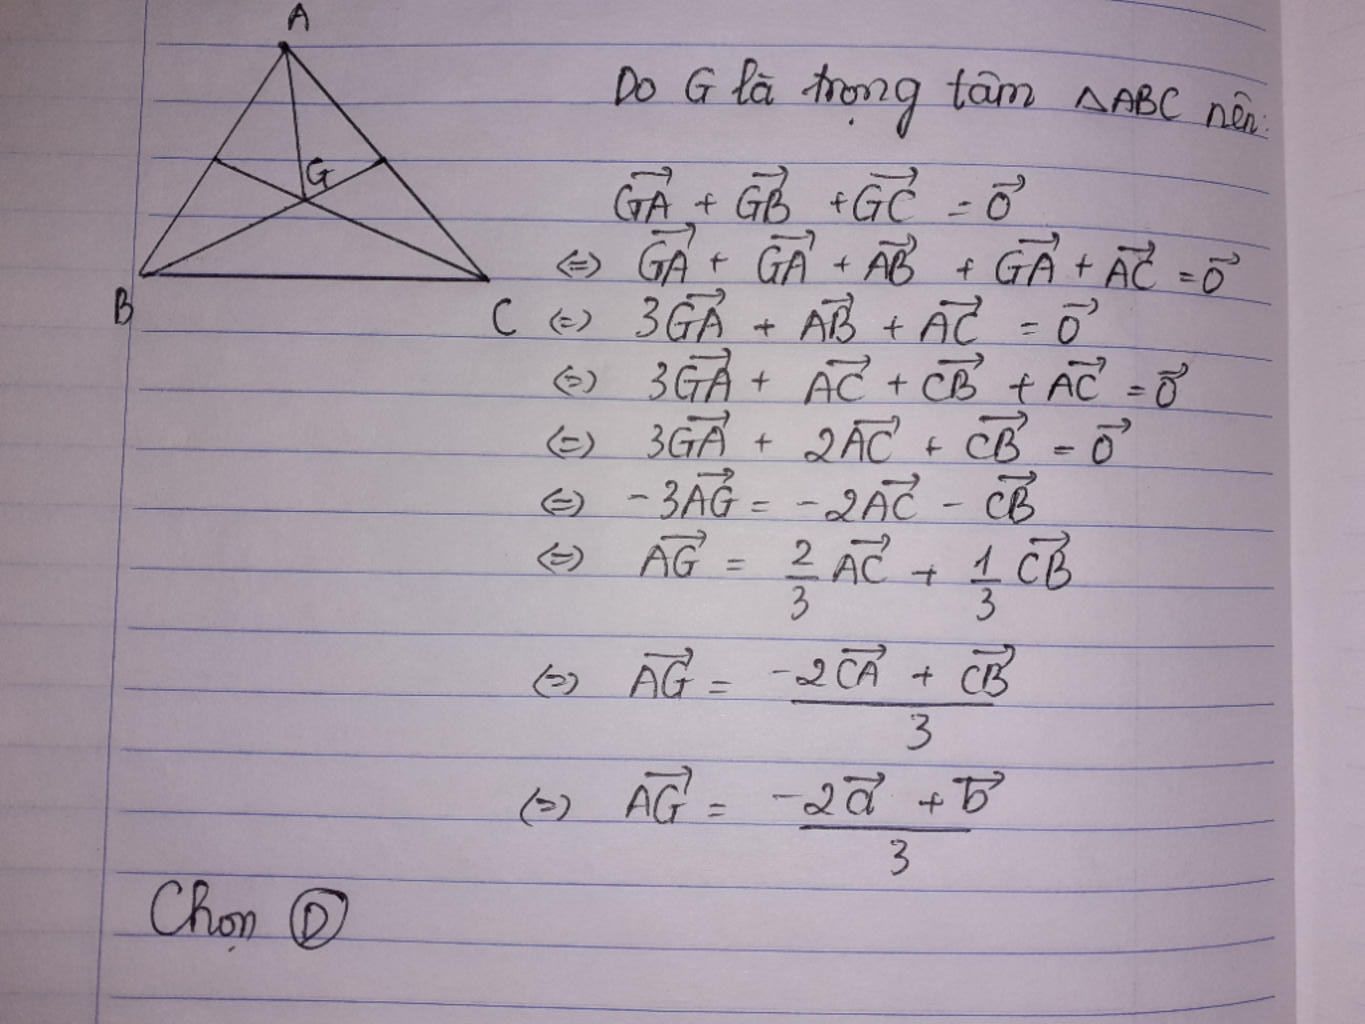 A
G
B
C
Do G là trọng tâm △ABC nên:
$\overrightarrow{GA} + \overrightarrow{GB} + \overrightarrow{GC} = \overrightarrow{0}$
(=) $\overrightarrow{GA} + \overrightarrow{GA} + \overrightarrow{AB} + \overrightarrow{GA} + \overrightarrow{AC} = \overrightarrow{0}$
(=) $3\overrightarrow{GA} + \overrightarrow{AB} + \overrightarrow{AC} = \overrightarrow{0}$
(=) $3\overrightarrow{GA} + \overrightarrow{AC} + \overrightarrow{CB} + \overrightarrow{AC} = \overrightarrow{0}$
(=) $3\overrightarrow{GA} + 2\overrightarrow{AC} + \overrightarrow{CB} = \overrightarrow{0}$
(=) $-3\overrightarrow{AG} = -2\overrightarrow{AC} - \overrightarrow{CB}$
(=) $\overrightarrow{AG} = \frac{2}{3}\overrightarrow{AC} + \frac{1}{3}\overrightarrow{CB}$
(=) $\overrightarrow{AG} = \frac{-2\overrightarrow{CA} + \overrightarrow{CB}}{3}$
(=) $\overrightarrow{AG} = \frac{-2\overrightarrow{a} + \overrightarrow{b}}{3}$
Chọn Ⓓ